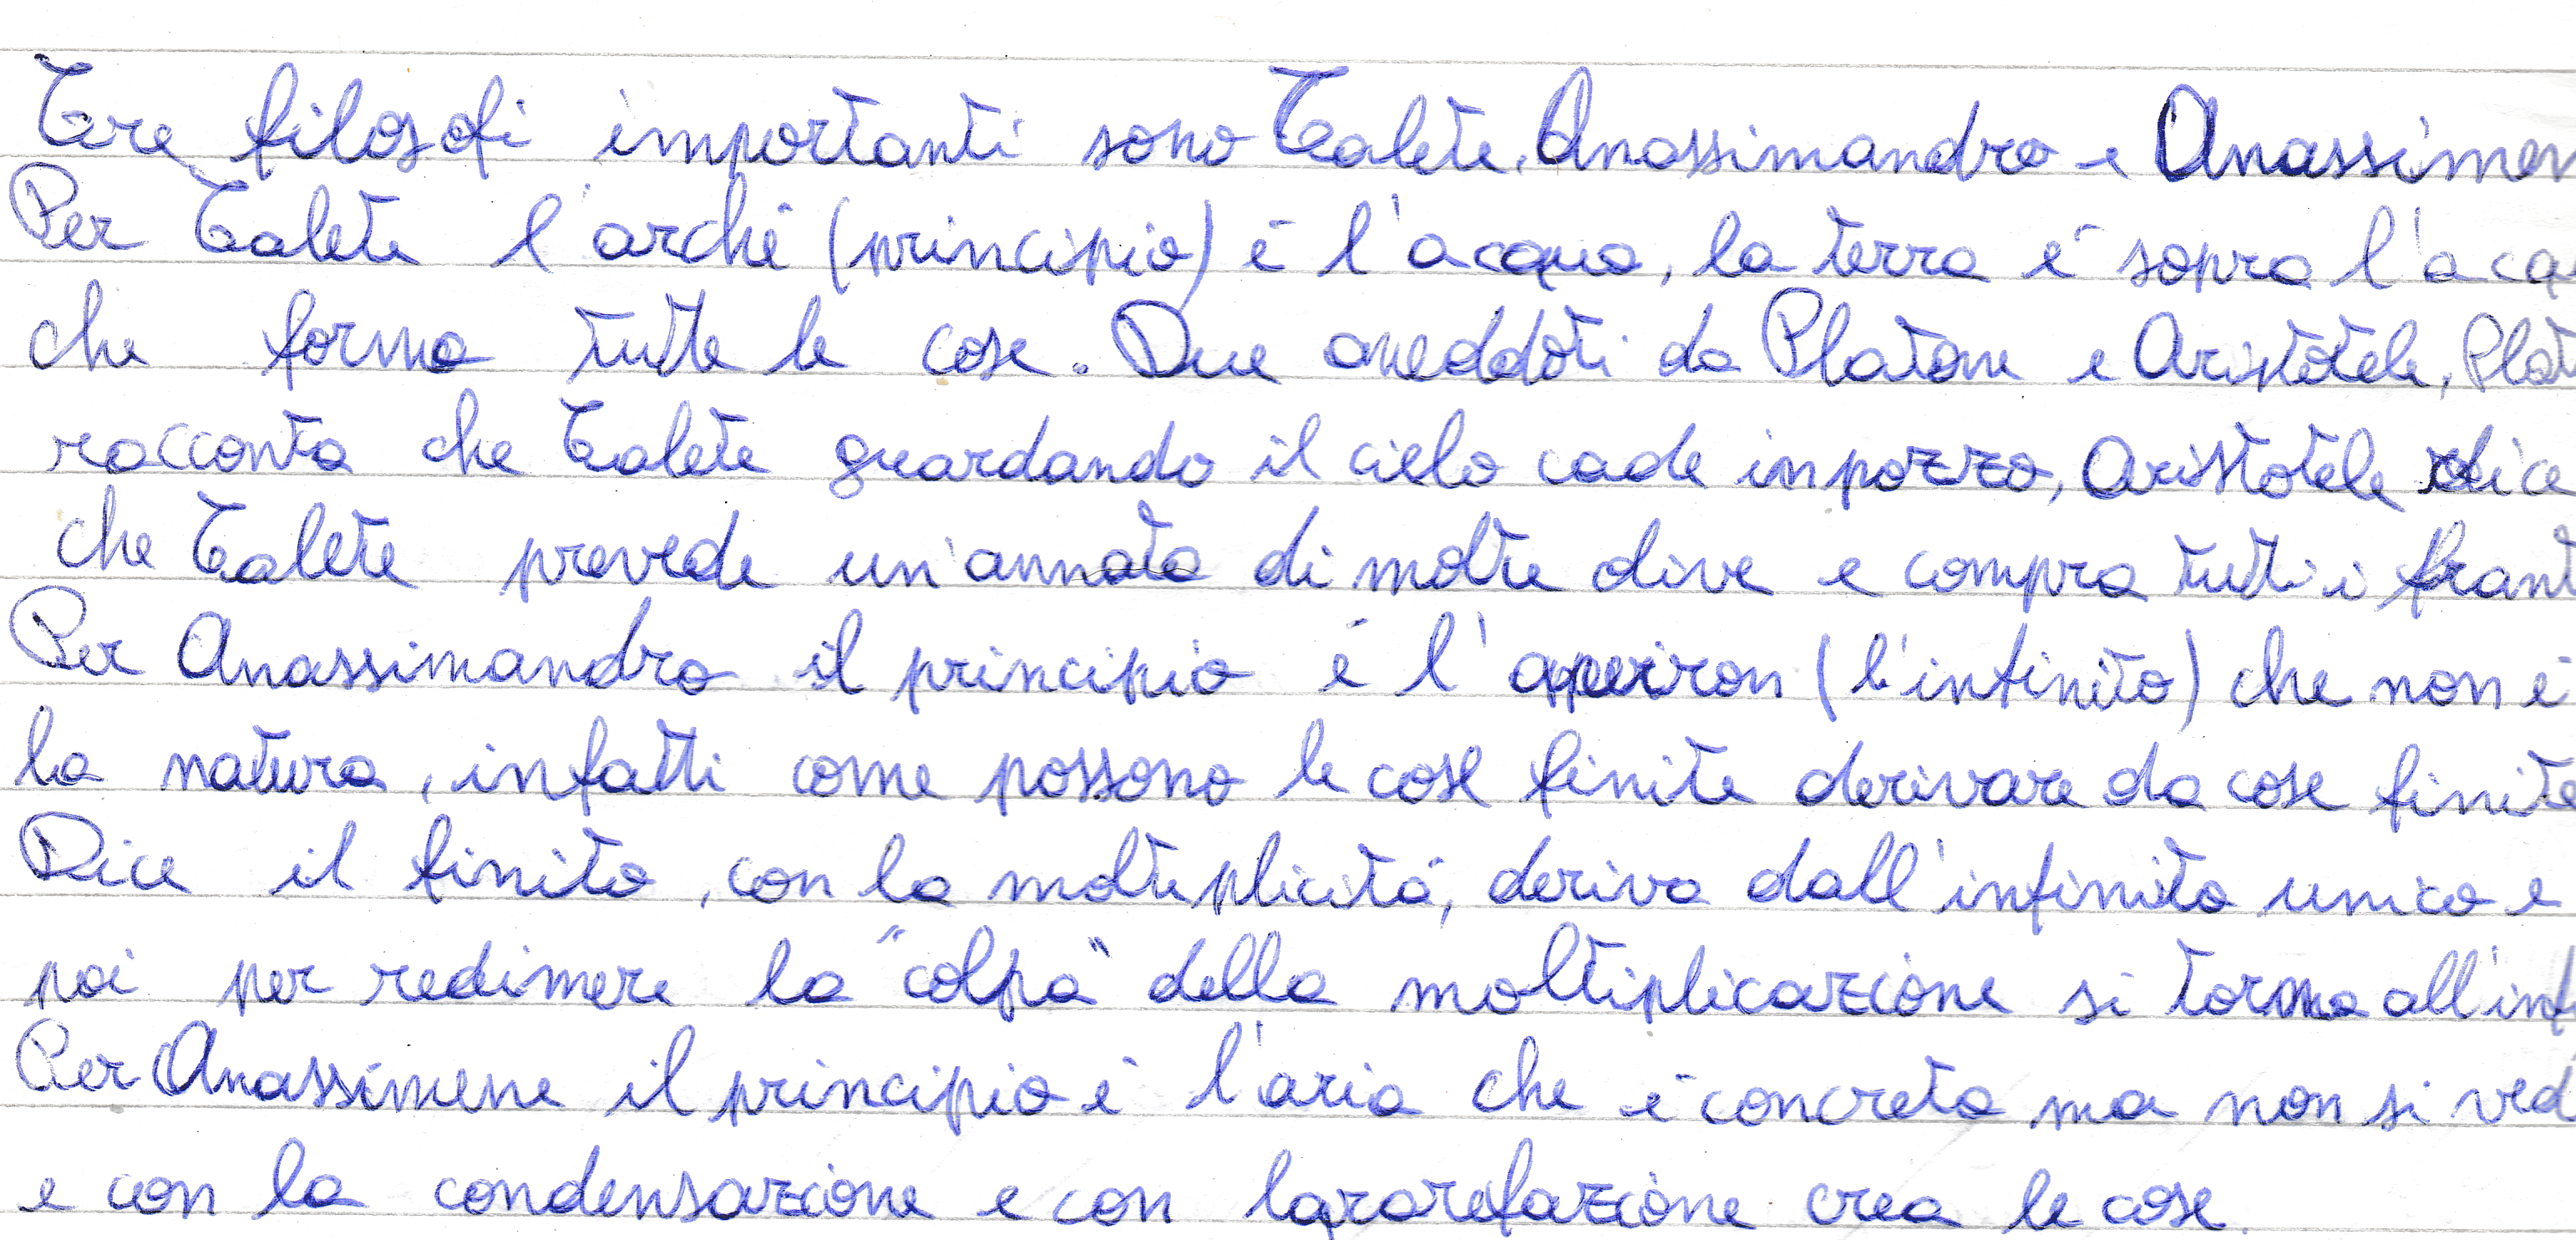 Tre filosofi importanti sono Talete, Anassimandro e Anassimen
Per Talete l'arché (principio) è l'acqua, la terra è sopra l'acq
che forma tutte le cose. Due aneddoti da Platone e Aristotele, Plat
racconta che Talete guardando il cielo cade in pozzo, Aristotele dice
che Talete prevede un'annata di molte olive e compra tutti i frant
Per Anassimandro il principio è l'apeiron (l'infinito) che non è
la natura, infatti come possono le cose finite derivare da cose finite
Dice il finito, con la molteplicità, deriva dall'infinito unico e
poi per redimere la "colpa" della moltiplicazione si torna all'inf
Per Anassimene il principio è l'aria che è concreta ma non si ved
e con la condensazione e con la rarefazione crea le cose.